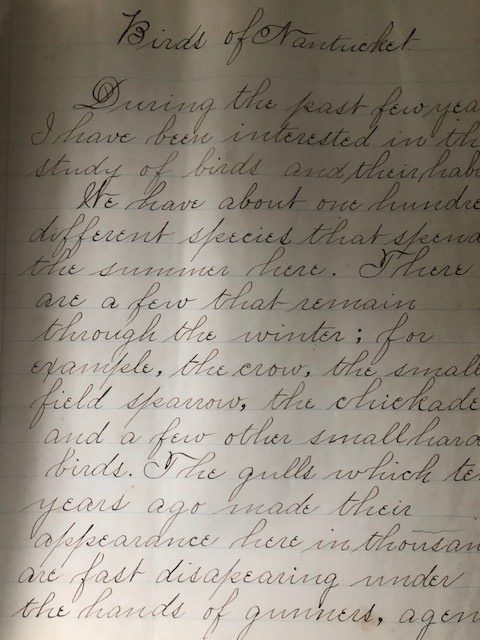 Birds of Nantucket.
During the past few yea
I have been interested in th
study of birds and their hab
We have about one hundre
different species that spend
the summer here. There
are a few that remain
through the winter; for
example, the crow, the small
field sparrow, the chickade
and a few other small hard
birds. The gulls which te
years ago made their
appearance here in thousan
are fast disapearing under
the hands of gunners, agen